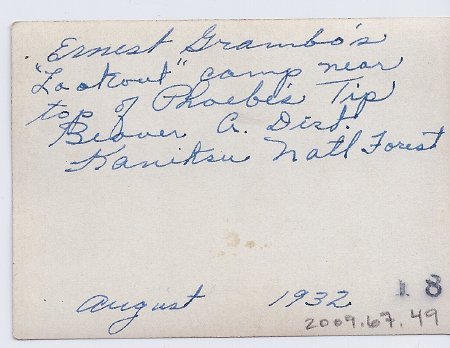 Ernest Grambo's
"Lookout" camp near
top of Phoebe's Tip
Beaver C. Dist.
Kaniksu Natl Forest
August 1932
18
2009.67.49